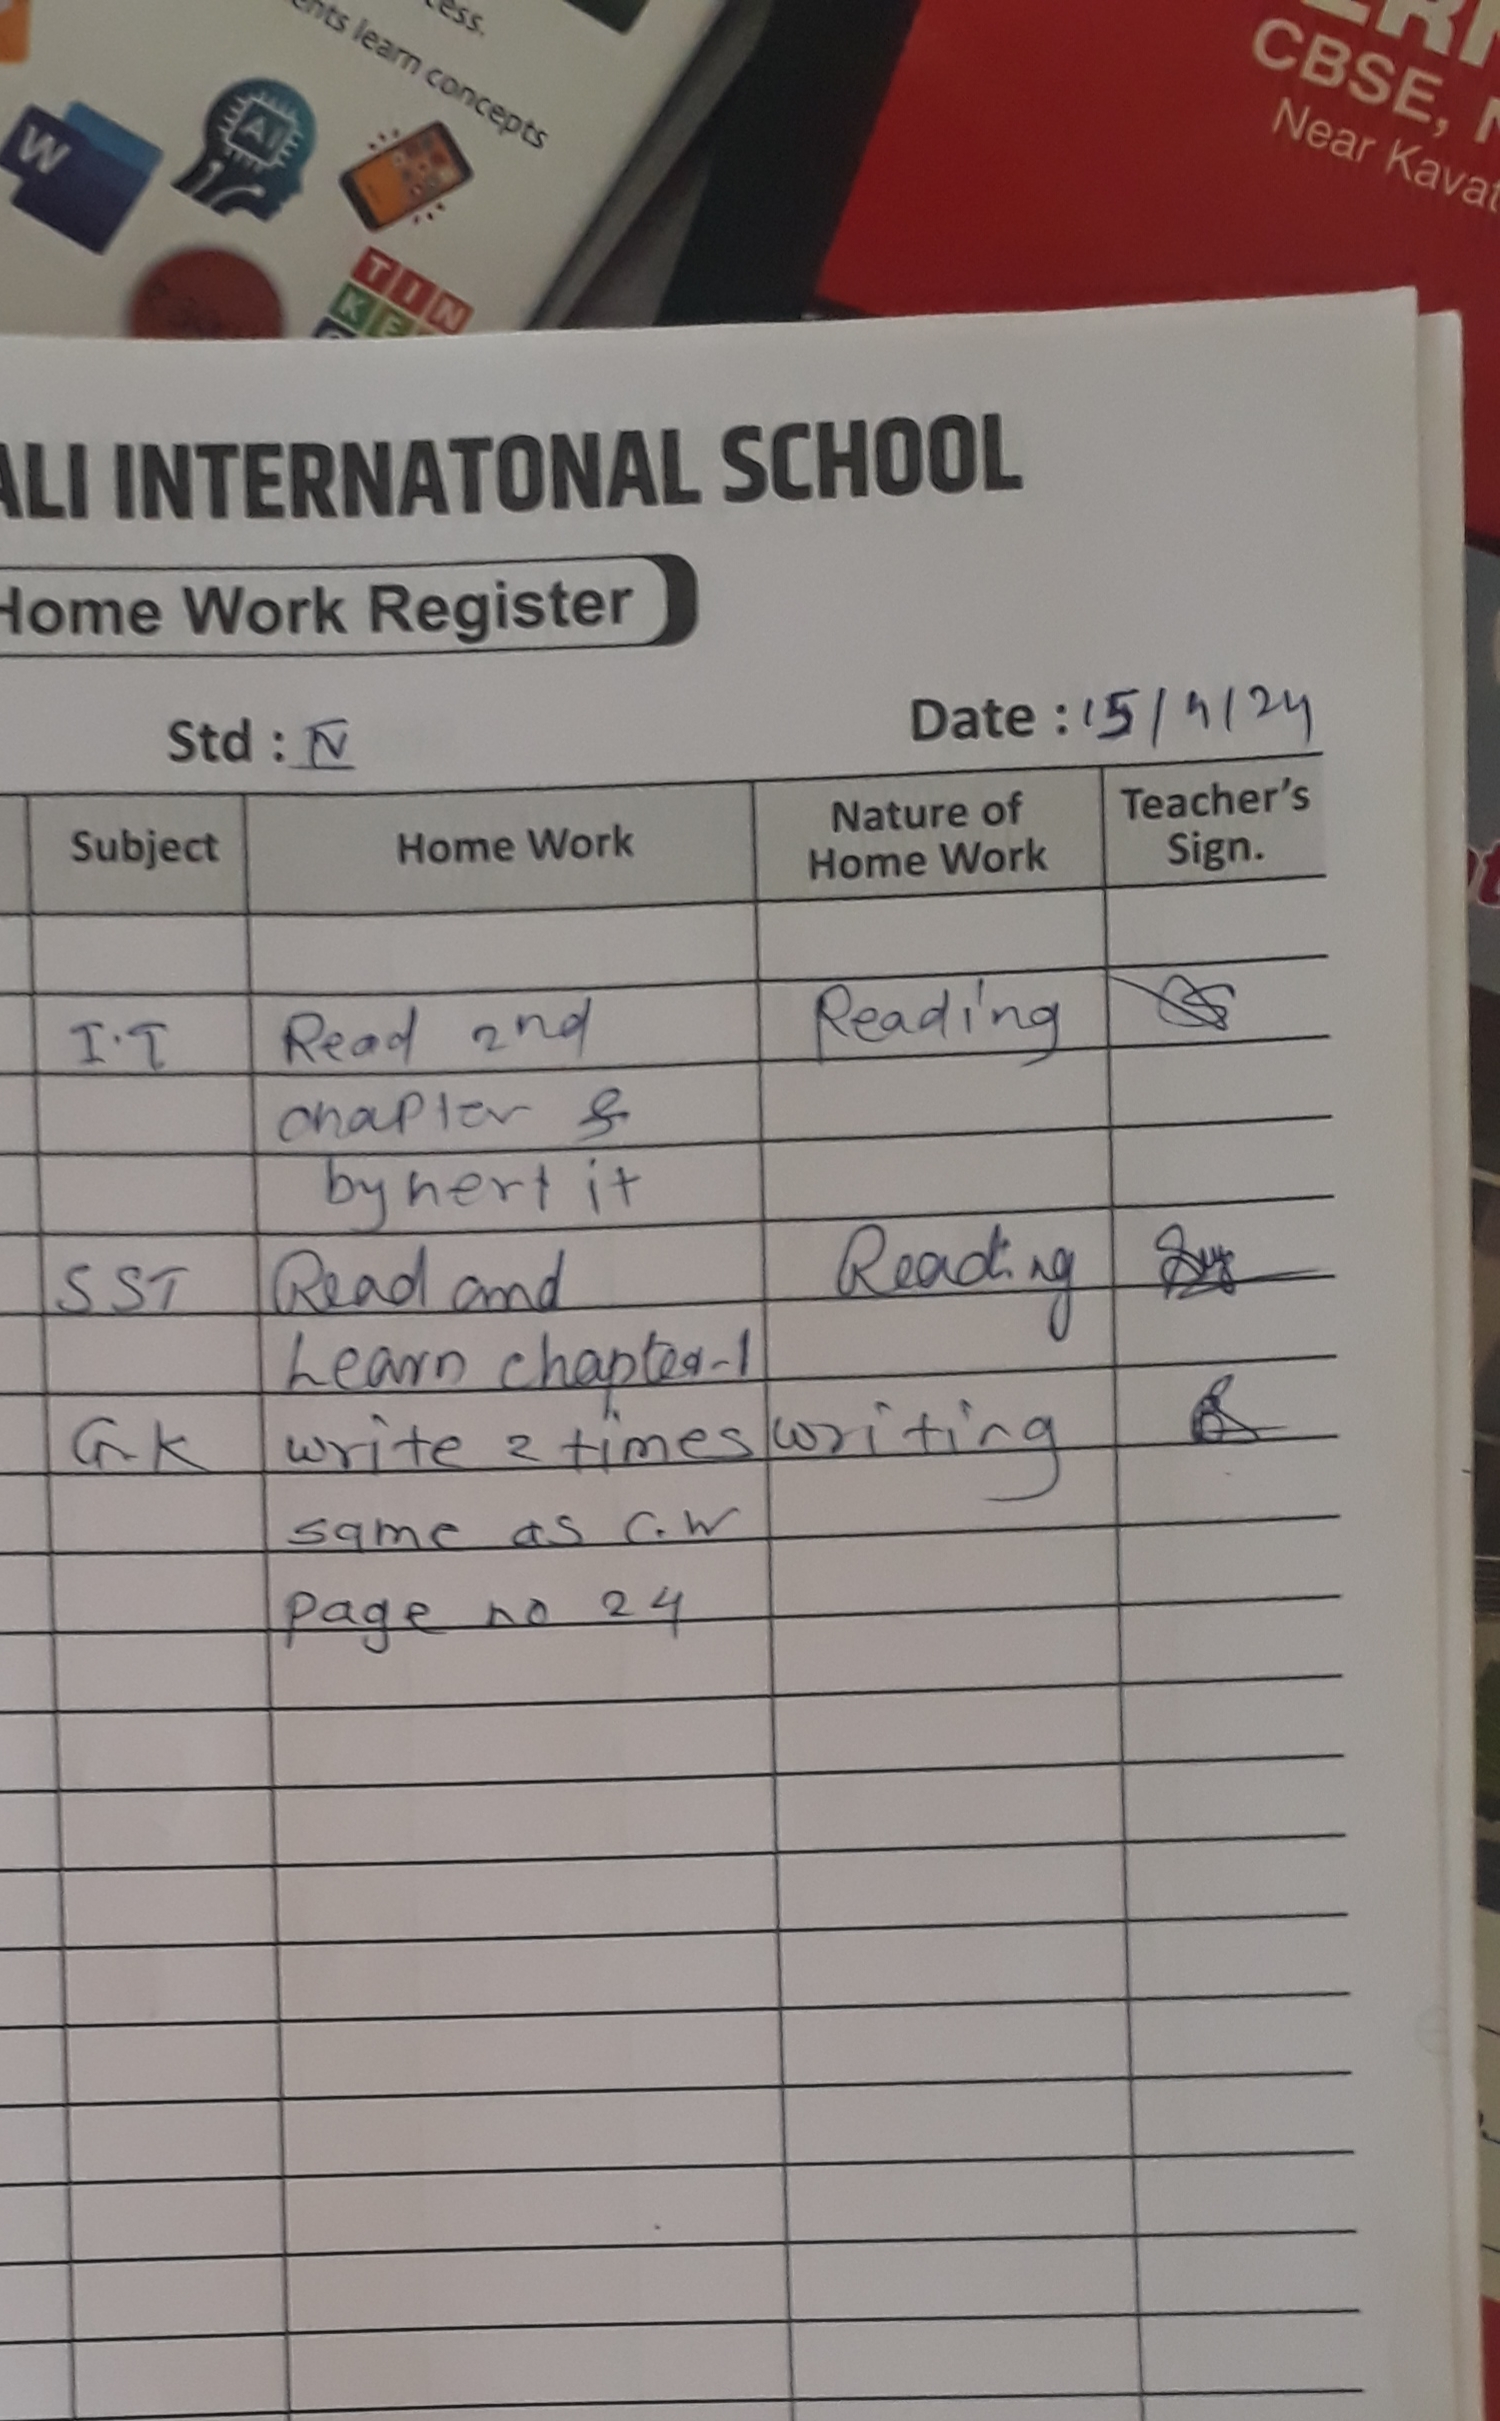 ess.
ents learn concepts
W
AI
TIN
KE
CBSE,
Near Kavat
ALI INTERNATONAL SCHOOL
Home Work Register
Std : IV
Date : 15/4/24
Subject
Home Work
Nature of
Home Work
Teacher's
Sign.
I.T Read 2nd Reading
chapter &
by hert it
SST Read and Reading
Learn chapter-1
G.K write 2 times writing
same as C.W
page no 24